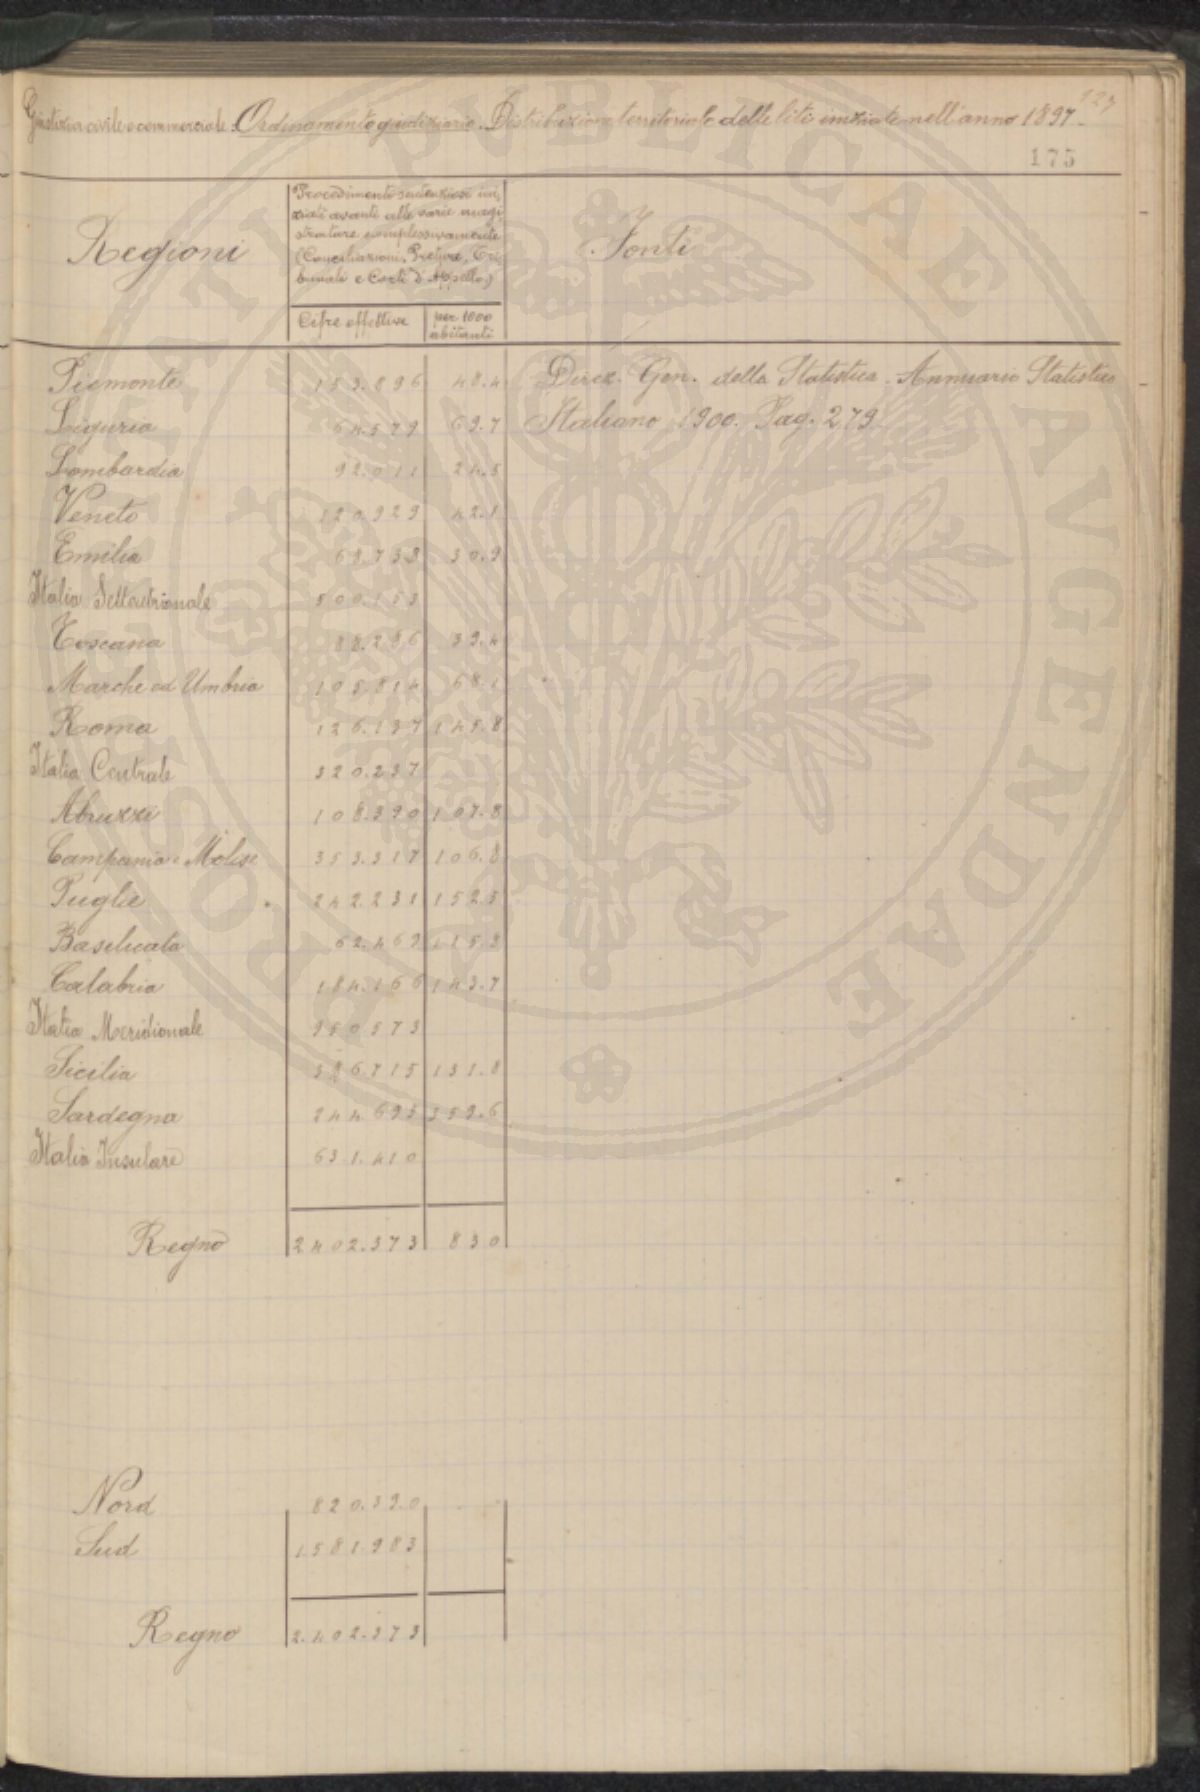 127
Giustizia civile e commerciale. Ordinamento giudiziario. Distribuzione territoriale delle liti iniziate nell'anno 1897.
175
Regioni
Procedimenti sentenziosi ini-
ziati avanti alle varie magi-
strature complessivamente
(Conciliazioni, Preture, Tri-
bunali e Corti d'Appello)
Cifre effettive
per 1000
abitanti
Fonti
Piemonte 153.896 48.4 Direz. Gen. della Statistica. Annuario Statistico
Liguria 64.579 69.7 Italiano 1900. Pag. 279
Lombardia 92.011 24.5
Veneto 120.929 42.1
Emilia 69.738 30.9
Italia Settentrionale 500.153
Toscana 88.286 39.4
Marche ed Umbria 105.814 68.1
Roma 126.137 145.8
Italia Centrale 320.237
Abruzzi 108.390 107.8
Campania e Molise 353.317 106.8
Puglie 242.231 152.5
Basilicata 62.469 115.3
Calabria 184.166 143.7
Italia Meridionale 950.573
Sicilia 386.715 131.8
Sardegna 244.695 359.6
Italia Insulare 631.410
Regno 2402.373 830
Nord 820.390
Sud 1.581.983
Regno 2.402.373
ROSPERITATI PUBLICAE AVGENDAE